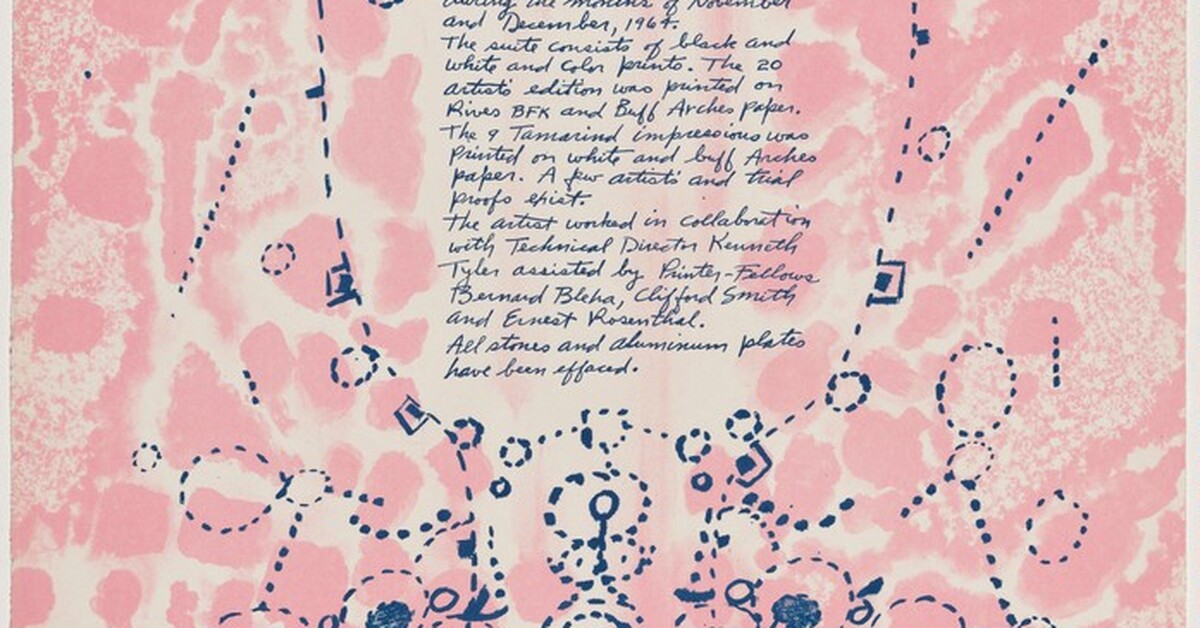 during the months of November
and December, 1964.
The suite consists of black and
white and color prints. The 20
artist's edition was printed on
Rives BFK and Buff Arches paper.
The 9 Tamarind impressions was
printed on white and buff Arches
paper. A few artist's and trial
proofs exist.
The artist worked in collaboration
with Technical Director Kenneth
Tyler assisted by Printer-Fellows
Bernard Bleha, Clifford Smith
and Ernest Rosenthal.
All stones and aluminum plates
have been effaced.